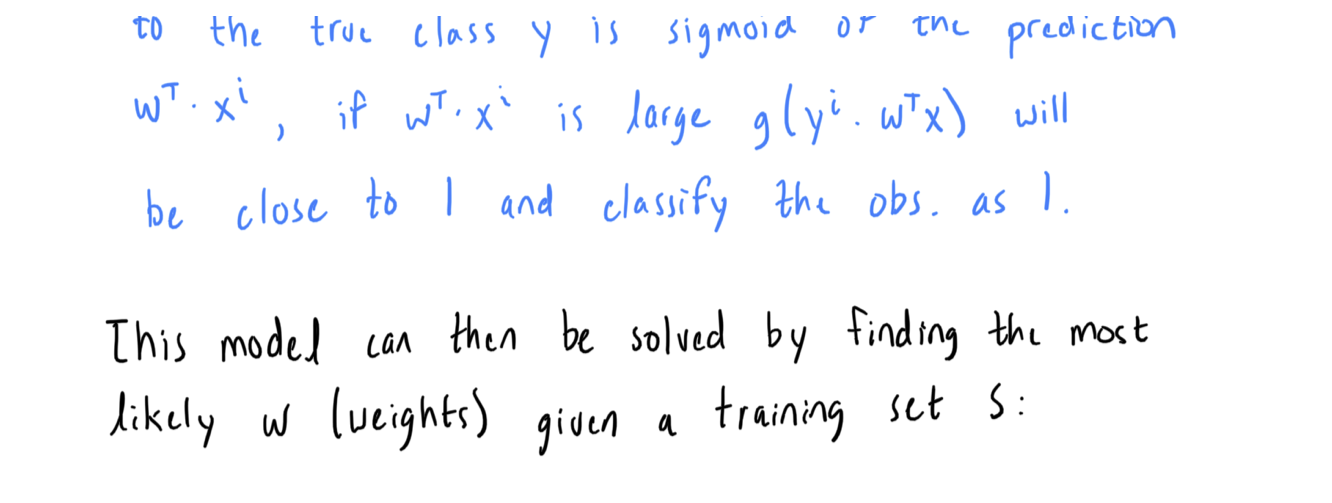 to the true class y is sigmoid of the prediction
wᵀ · xⁱ, if wᵀ · xⁱ is large g(yⁱ · wᵀx) will
be close to 1 and classify the obs. as 1.
This model can then be solved by finding the most
likely w (weights) given a training set S: